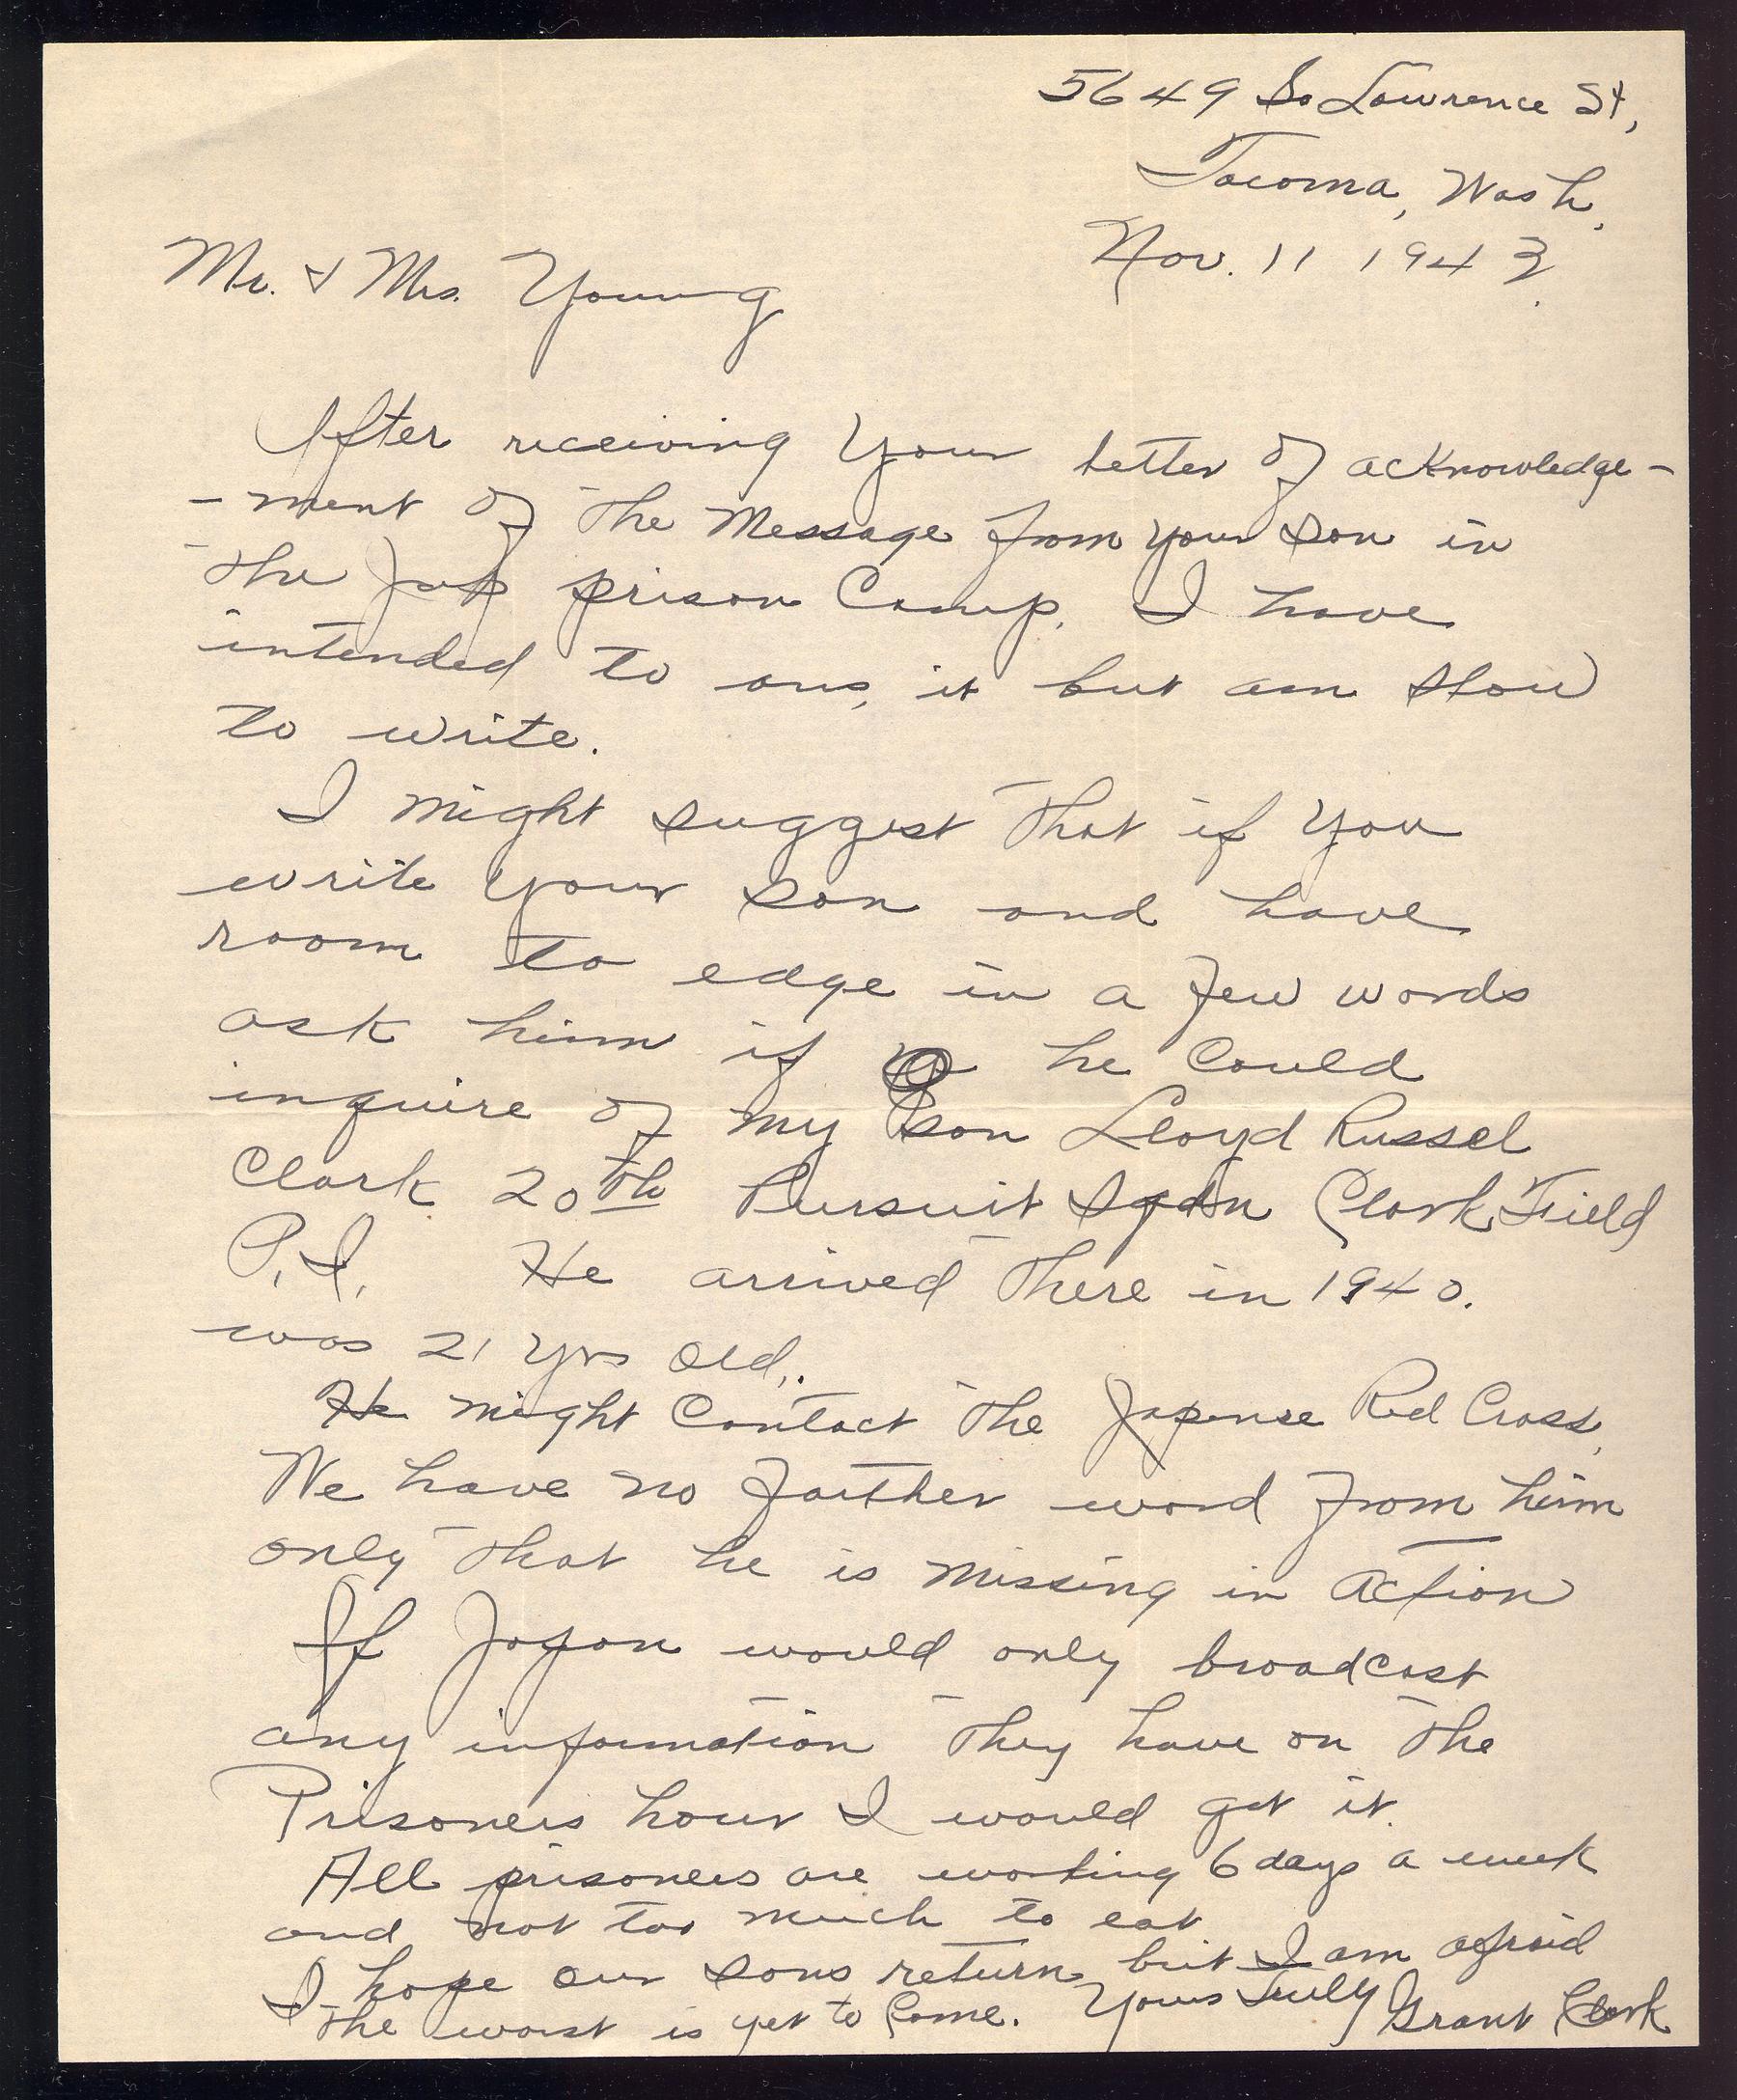 5649 So Lawrence St,
Tacoma, Wash.
Nov. 11 1943.
Mr. & Mrs. Young
After receiving your letter of acknowledge-
- ment of the message from your son in
the Jap prison Camp. I have
intended to ans, it but am slow
to write.
I might suggest that if you
write your son and have
room to edge in a few words
ask him if he could
inquire of my son Lloyd Russel
Clark 20th Pursuit Sqdn Clark Field
P.I. He arrived there in 1940.
was 21 yrs old,.
He might Contact the Japense Red Cross.
We have no farther word from him
only that he is missing in action
If Japan would only broadcast
any information they have on the
Prisoners hour I would get it.
All prisoners are working 6 days a week
and not too much to eat
I hope our sons return, but I am afraid
the worst is yet to Come. Yours Truly Grant Clark